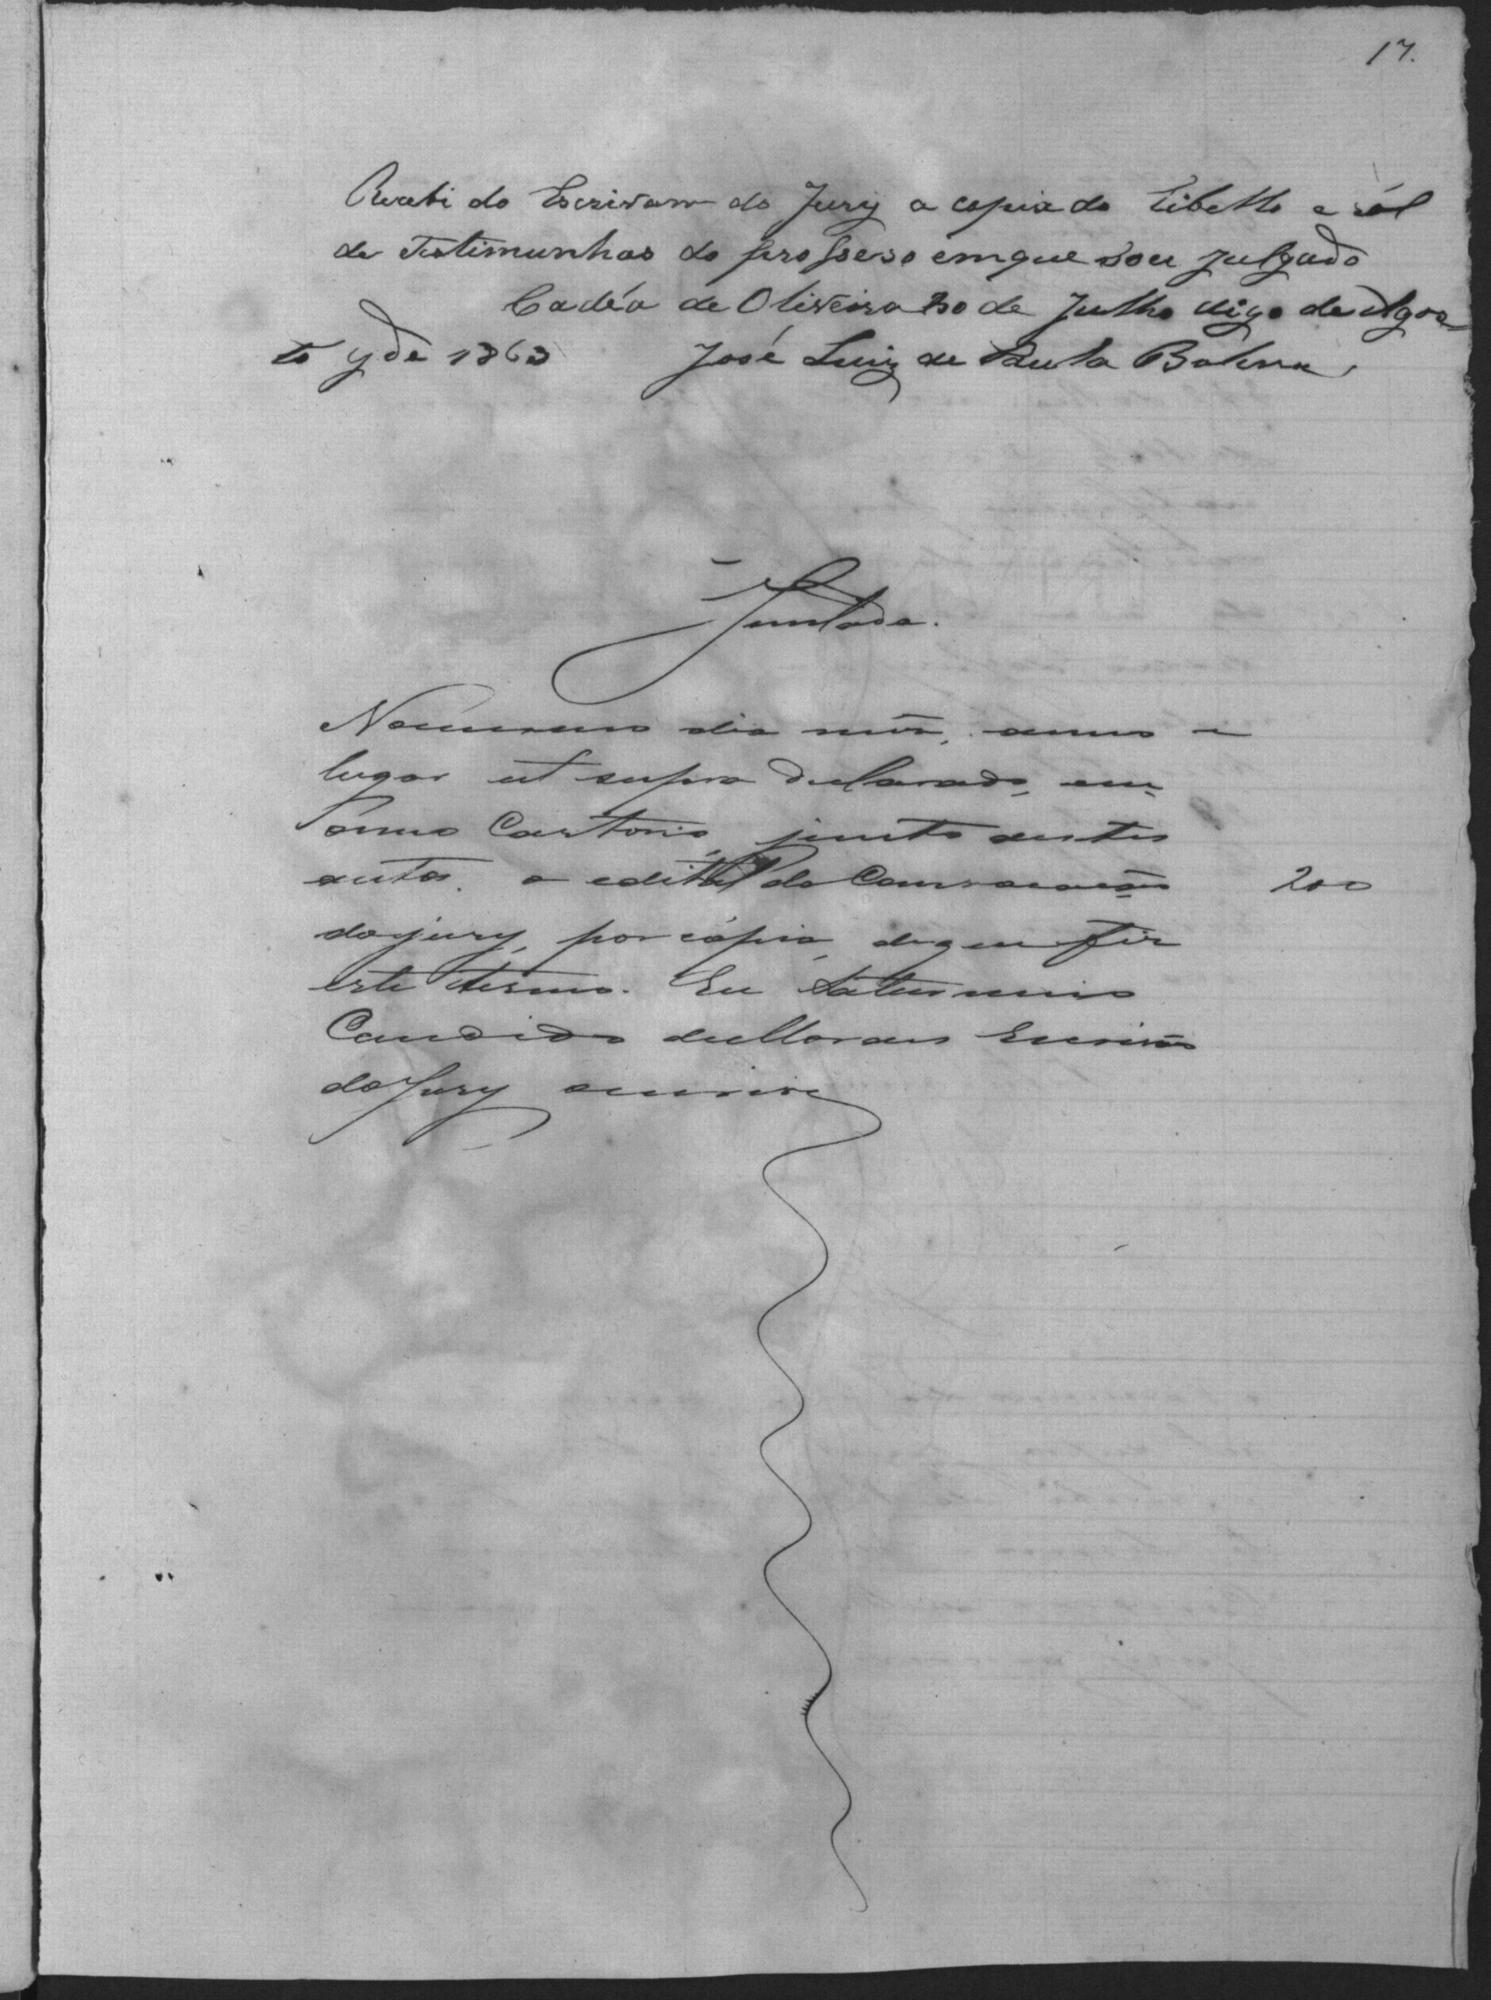 17.
Recebi do Escrivam do Jury a copia do Libello e ról
de Testimunhas do prosseso em que sou julgado
Cadêa de Oliveira 30 de Julho digo de Agos-
to 9 de 1863 José Luiz de Paula
Juntada.
No mesmo dia mês, anno e
lugar ut supra declarado, em
Cartorio, junto a estes
autos. o edital da Convocação 200
do jury, por cópia, do que fiz
este termo. Eu Saturnino
Candido de Moraes Escrivão
do Jury o escrevi